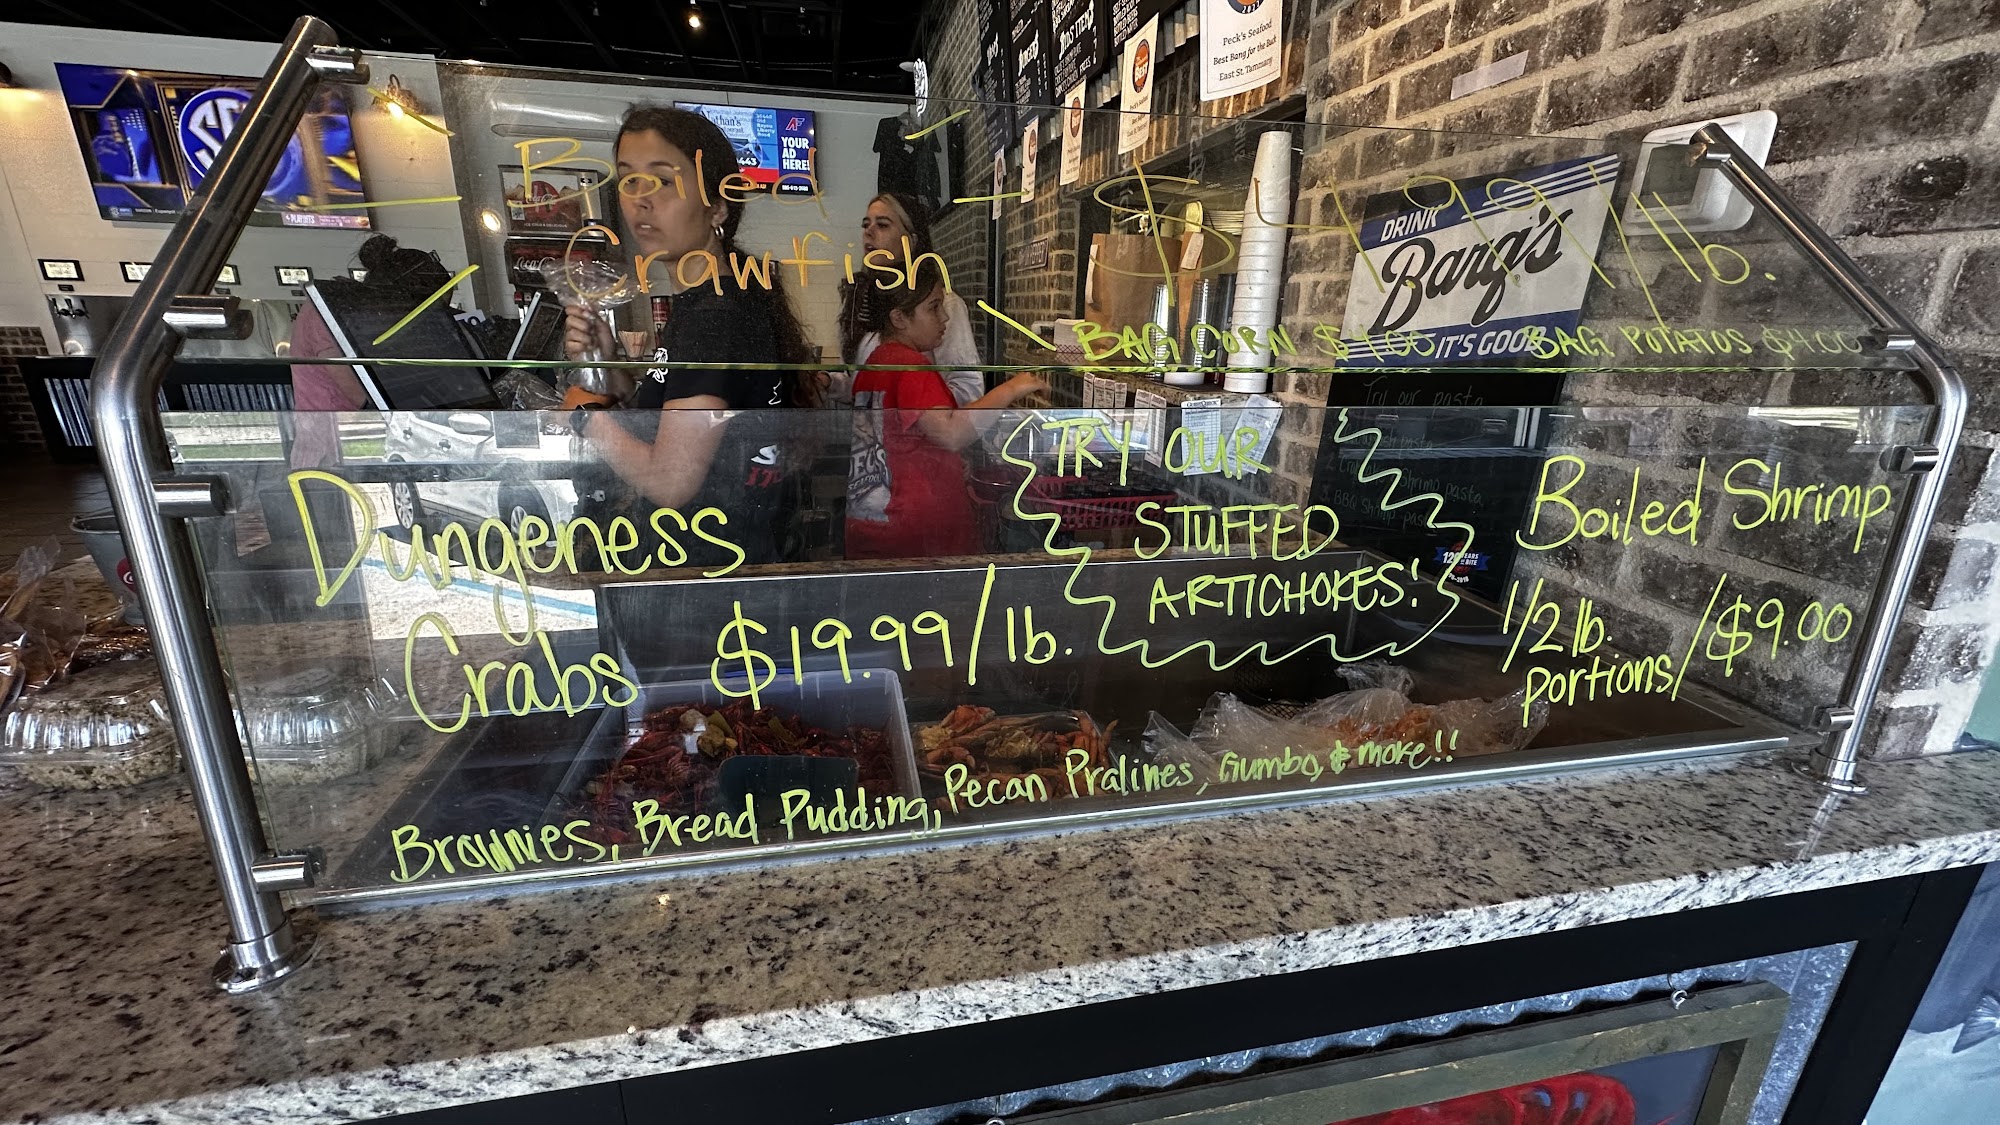 Boiled
Crawfish
$4.99/lb.
BAG CORN $4.00
BAG POTATOS $4.00
Dungeness
Crabs $19.99/lb.
TRY OUR
STUFFED
ARTICHOKES!
Boiled Shrimp
1/2 lb.
portions/$9.00
Brownies, Bread Pudding, Pecan Pralines, Gumbo, & more!!
DRINK
Barq's
IT'S GOOD
Try our pasta
Peck's Seafood
Best Bang for the Buck
East St. Tammany
YOUR
AD
HERE!